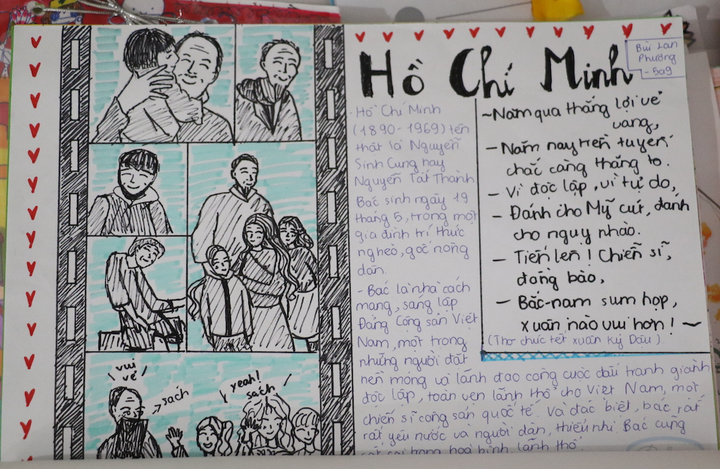 Hồ Chí Minh
Bùi Lan
Phương
- 509
Hồ Chí Minh
(1890-1969) tên
thật là Nguyễn
Sinh Cung hay
Nguyễn Tất Thành.
Bác sinh ngày 19
tháng 5, trong một
gia đình trí thức
nghèo, gốc nông
dân.
- Bác là nhà cách
mạng, sáng lập
Đảng Cộng sản Việt
Nam, một trong
những người đặt
nền móng và lãnh đạo công cuộc đấu tranh giành
độc lập, toàn vẹn lãnh thổ cho Việt Nam, một
chiến sĩ cộng sản quốc tế. Và đặc biệt, bác rất
rất yêu nước và người dân, thiếu nhi. Bác cũng
~Năm qua thắng lợi vẻ
vang,
- Năm nay tiền tuyến
chắc càng thắng to.
- Vì độc lập, vì tự do,
- Đánh cho Mỹ cút, đánh
cho ngụy nhào.
- Tiến lên! Chiến sĩ,
đồng bào,
- Bắc-nam sum họp,
xuân nào vui hơn! ~
(Thơ chúc tết xuân Kỷ Dậu)
vui
vẻ
sách
yeah!
sách